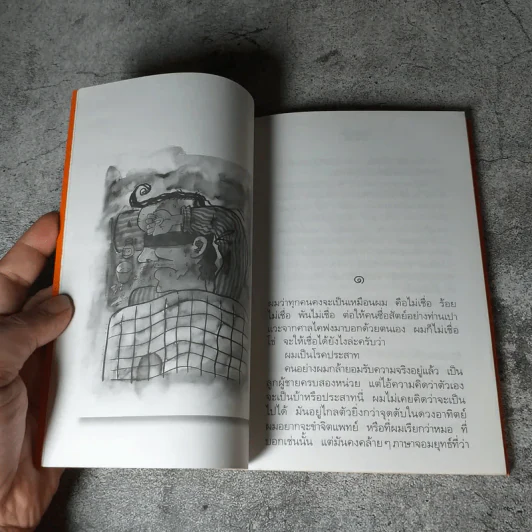 ๑
ผมว่าทุกคนคงจะเป็นเหมือนผม คือไม่เชื่อ ร้อย
ไม่เชื่อ พันไม่เชื่อ ต่อให้คนซื่อสัตย์อย่างท่านเปา
แวะจากศาลไคฟงมาบอกด้วยตนเอง ผมก็ไม่เชื่อ
จะให้เชื่อได้ยังไงล่ะครับว่า
ผมเป็นโรคประสาท
คนอย่างผมกล้ายอมรับความจริงอยู่แล้ว เป็น
ลูกผู้ชายครบสองหน่วย แต่ไอ้ความคิดว่าตัวเอง
จะเป็นบ้าหรือประสาทนี่ ผมไม่เคยคิดว่าจะเป็น
ไปได้ มันอยู่ไกลตัวยิ่งกว่าจุดดับในดวงอาทิตย์
ผมอยากจะขำจิตแพทย์ หรือที่ผมเรียกว่าหมอ ที่
บอกเช่นนั้น แต่มันคงคล้ายๆ ภาษาจอมยุทธ์ที่ว่า